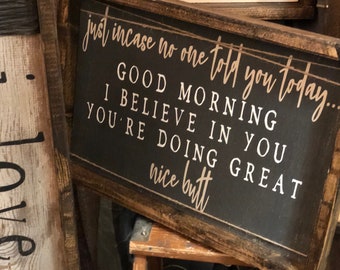 just incase no one told you today...
GOOD MORNING
I BELIEVE IN YOU
YOU'RE DOING GREAT
nice butt
love